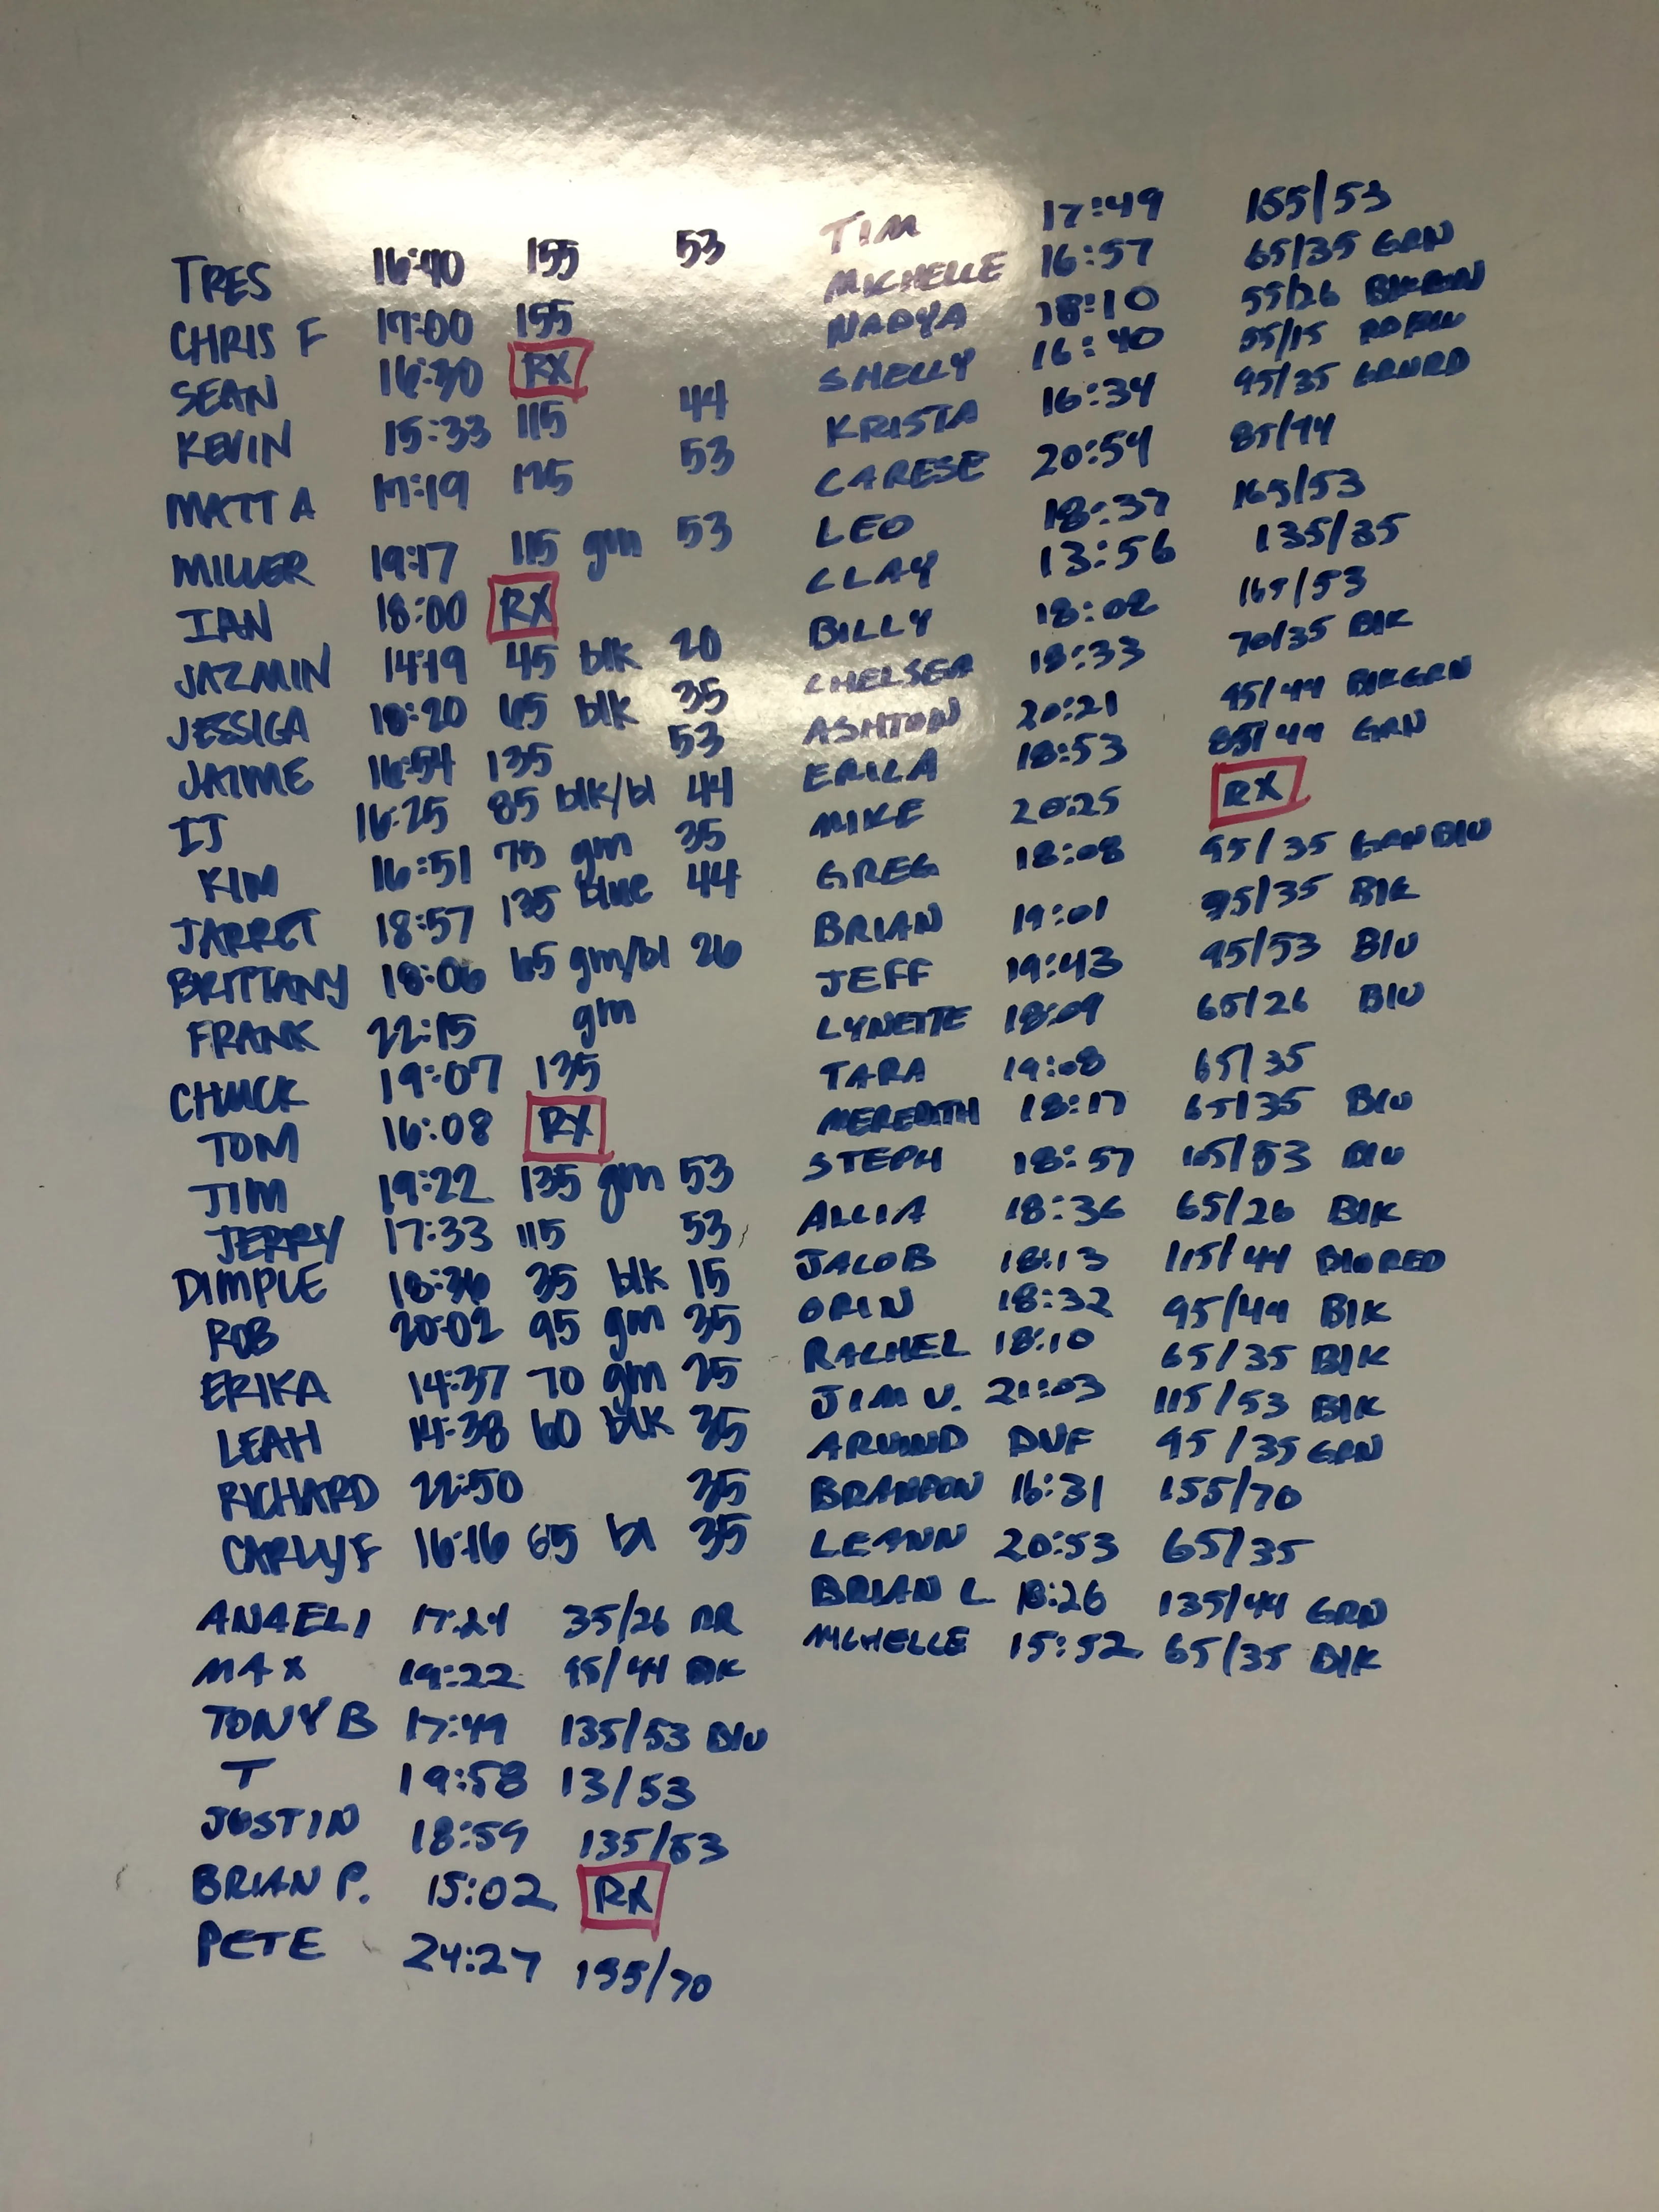 TRES 16:40 155 53
CHRIS F 17:00 155
SEAN 16:30 RX
KEVIN 15:33 115 44
MATT A 17:19 53
MILLER 19:17 115 gm 53
IAN 18:00 RX
JAZMIN 14:19 45 blk 20
JESSICA 18:20 65 blk 35
JAIME 16:54 135 53
IJ 16:25 85 blk/bl 44
KIM 16:51 75 gm 35
JARRET 18:57 135 blue 44
BRITTANY 18:06 65 gm/bl 26
FRANK 22:15 gm
CHUCK 19:07 135
TOM 16:08 RX
JIM 19:22 135 gm 53
JERRY 17:33 115 53
DIMPLE 18:36 35 blk 15
ROB 20:02 95 gm 35
ERIKA 14:37 70 gm 25
LEAH 14:38 60 blk 35
RICHARD 22:50 35
CARLY F 16:16 65 bl 35
ANAELI 17:24 35/26
MAX 19:22 95/44 BK
TONY B 17:49 135/53 BlU
T 19:58 13/53
JUSTIN 18:59 135/53
BRIAN P. 15:02 RX
PETE 24:27 155/70
TIM 17:49 155/53
MICHELLE 16:57 65/35 GRN
NADYA 18:10 55/26
SHELLY 16:40 55/15
KRISTA 16:34 95/35
CARESE 20:54 85/44
LEO 18:37 165/53
CLAY 13:56 135/35
BILLY 18:02 165/53
CHELSEA 18:33 70/35 BlK
ASHTON 20:21 95/44 BlKGRN
ERICA 18:53 85/44 GRN
MIKE 20:25 RX
GREG 18:08 95/35 GRNBlU
BRIAN 19:01 95/35 BlK
JEFF 19:43 95/53 BlU
LYNETTE 18:09 65/26 BlU
TARA 19:08 65/35
MEREDITH 18:17 65/35 BlU
STEPH 18:57 105/53 BlU
ALLIA 18:36 65/26 BlK
JACOB 18:13 115/44 BlURED
ORIN 18:32 95/44 BlK
RACHEL 18:10 65/35 BlK
JIM V. 21:03 115/53 BlK
ARVIND DNF 95/35 GRN
BRANDON 16:31 155/70
LEANN 20:53 65/35
BRIAN L 18:26 135/44 GRN
MICHELLE 15:52 65/35 BlK